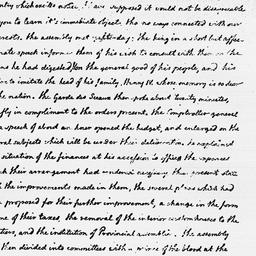 ntry which excites notice. I have supposed it would not be disagreeable
you to learn it's immediate objects, tho no ways connected with our
erests. the assembly met yesterday: the king in a short but affec-
nate speech informed them of his wish to consult with them on the
ns he had digested for the general good of his people, and his
ire to imitate the head of his family, Henry IV. whose memory is so dear
the nation. the Garde des Sceaux then spoke about twenty minutes,
efly in compliment to the orders present. the Comptroller general
a speech of about an hour opened the budget, and enlarged on the
ral subjects which will be under their deliberation. he explained
situation of the finances at his accession to office, the expences
ch their arrangement had rendered necessary, their present state
h the improvements made in them, the several plans which had
n proposed for their further improvement, a change in the form
me of their taxes, the removal of the interior custom houses to the
tiers, and the institution of Provincial assemblies. the assembly
then divided into committees with a prince of the blood at the